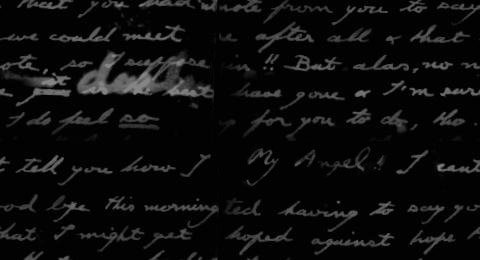 that you had a note from you to say
we could meet after all & that
so I suppose !! But alas, no
it is the have gone & I'm sure
I do feel so for you to do, tho.
tell you how I My Angel!! I cant
bye this morning having to say
that I might get hoped against hope